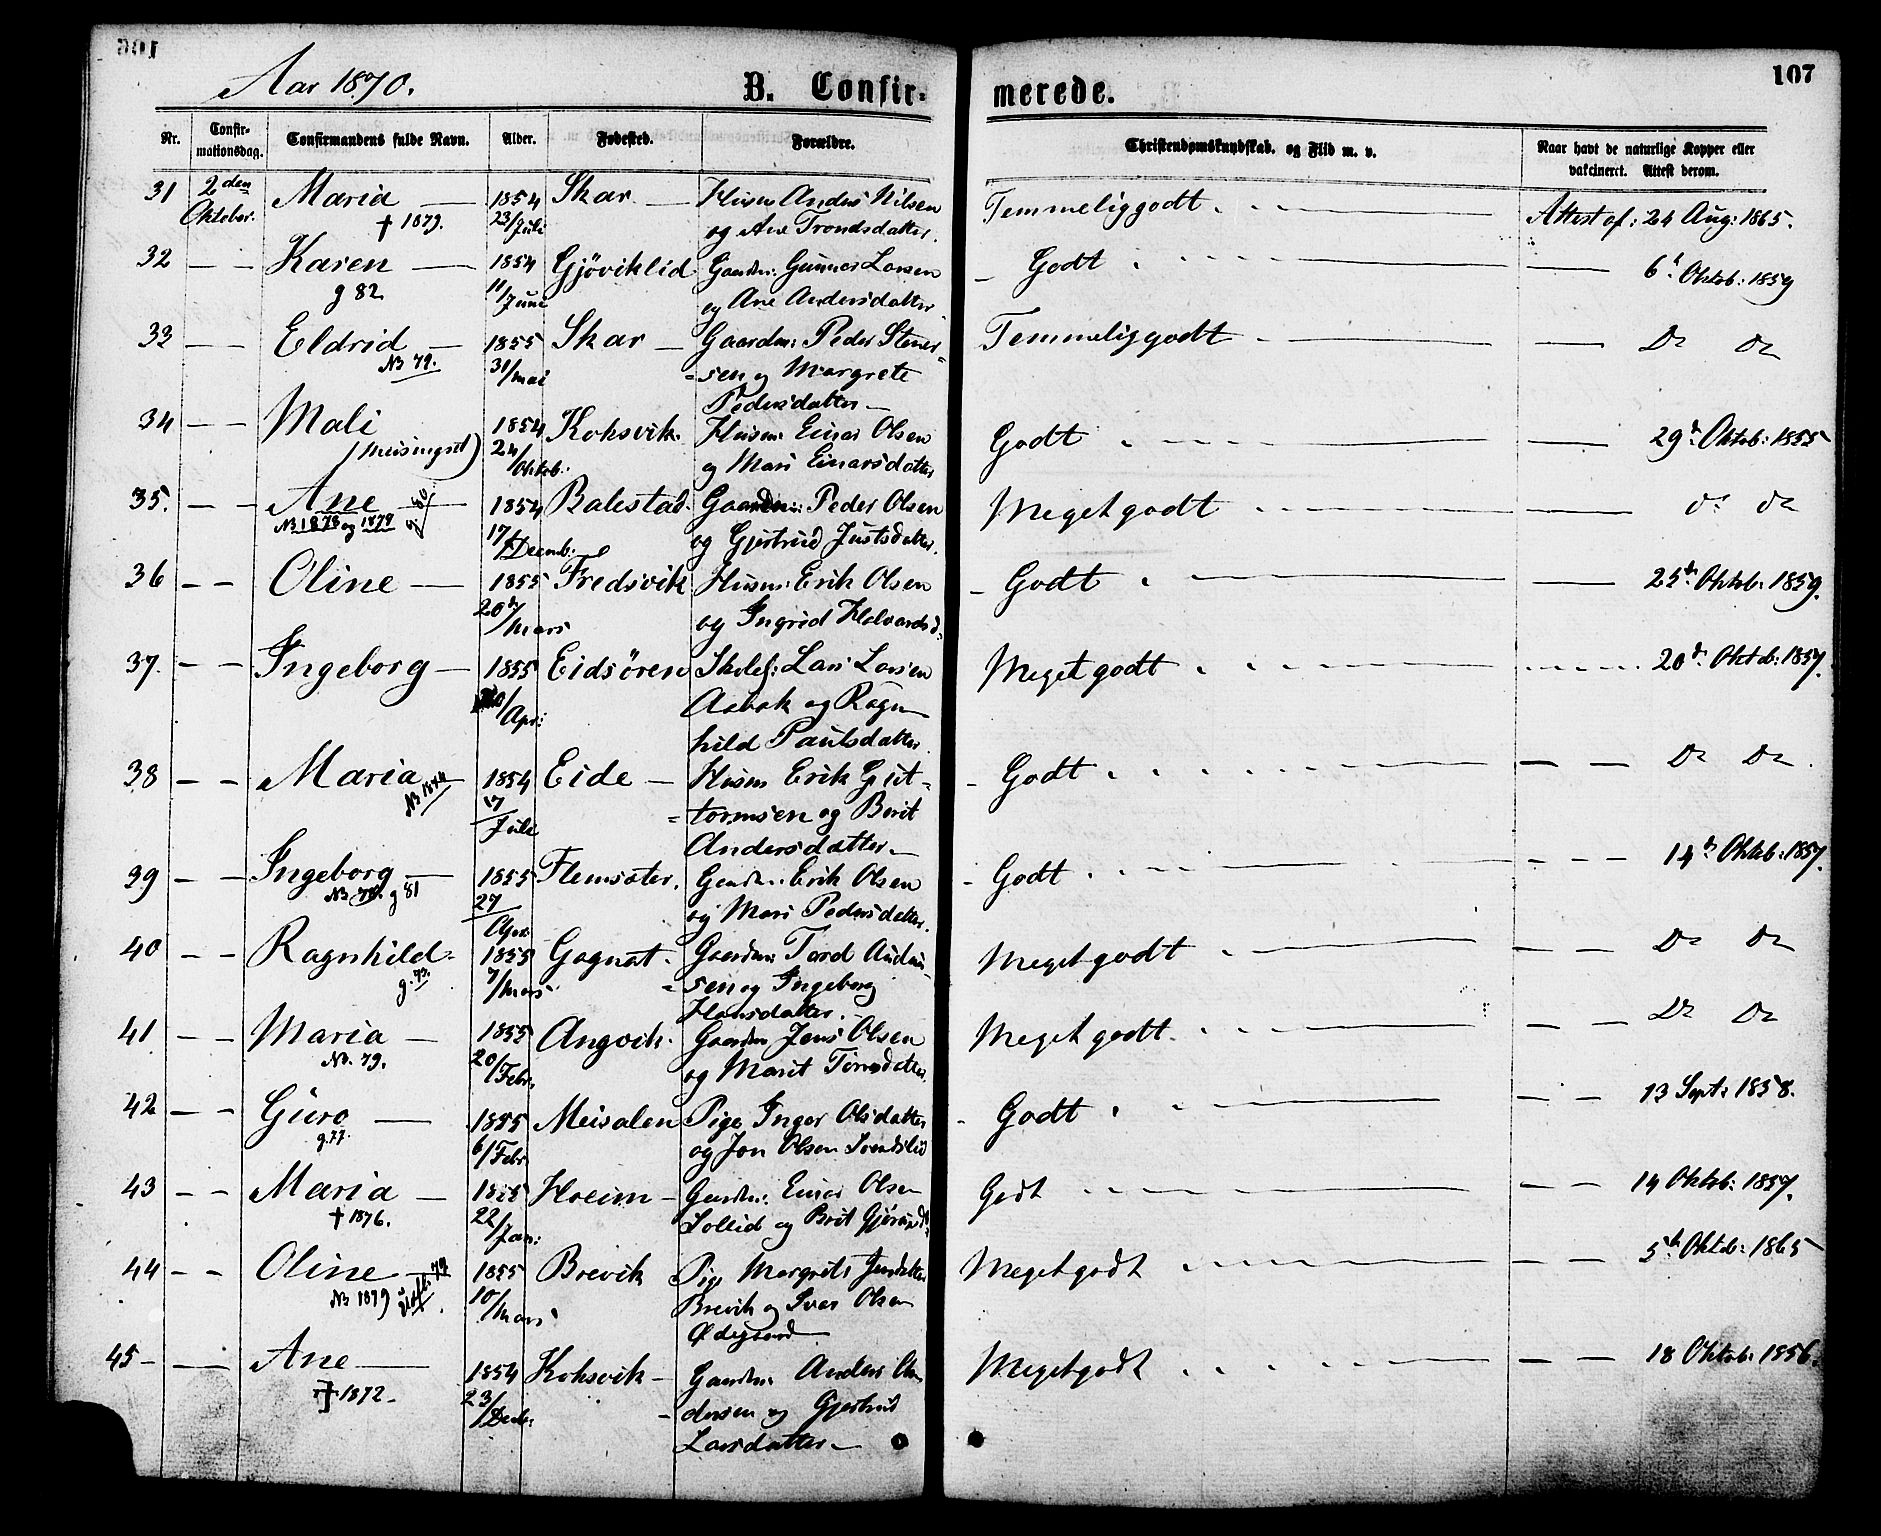 Aar 1870.
B. Confir-
merede.
107
Nr.
Confir-
mationsdag.
Confirmandens fulde Navn.
Alder.
Fødested.
Forældre.
Christendomskundskab, og Flid m. v.
Naar havt de naturlige Kopper eller
vakcineret. Attest derom.
31 2den Maria — 1854 Skar — Husm: Anders Nilsen Temmelig godt Attest af: 24 Aug: 1865.
Oktober. † 1879. 23/Juli og Ane Trondsdatter.
32 — — Karen — 1854 Gjöviklid Gaardm: Gunnar Larsen Godt 6t Oktob: 1859
g 82 11/Juni og Ane Andersdatter
33 — — Eldrid — 1855 Skar — Gaardm: Peder Stener- Temmelig godt Do Do
NB 79. 31/Mai =sen og Margrete
Pedersdatter —
34 — — Mali 1854 Koksvik. Husm: Einar Olsen Godt 29d: Oktob: 1855
(Meisingset) 24/Oktob: og Mari Einarsdatter
35. — — Ane — g 80. 1854 Balestad. Gaardm: Peder Olsen Meget godt Do Do
NB 1878 og 1879 17/Decemb: og Gjertrud Justsdatter.
36 — — Oline — 1855 Fredsvik Husm: Erik Olsen Godt 25de Oktob: 1859.
20de/Mars og Ingrid Halvardsd:
37. — — Ingeborg — 1855 Eidsören Skolel: Lars Larsen Meget godt 20d: Oktob: 1857.
/Apr: Aabak og Ragn-
hild Paulsdatter.
38 — — Maria 1854 Eide — Husm Erik Gut- Godt Do Do.
17/Juli =tormsen og Berit
Andersdatter —
39 — — Ingeborg — 1855 Flemsæter. Gaardm: Erik Olsen Godt 14d: Oktob: 1857.
NB 78. g 81 27/Apr: og Mari Pedersdatter.
40 — — Ragnhild. 1855 Gagnat. Gaardm: Tord Audun- Meget godt Do Do
g. 73. 7/Mars =sen og Ingeborg
Hansdatter. —
41 — — Maria — 1855 Angvik. Gaardm Jens Olsen Meget godt. Do Do
NB. 79. 20/Febr. og Marit Toresdatter.
42 — — Guro — 1855 Meisalen Pige Inger Olsdatter Godt 13 Sept: 1858.
g. 77. 6/Febr og Jon Olsen Svendslid
43 — — Maria — 1855 Hoeim — Gaardm: Einar Olsen Godt 14 Oktob: 1857.
† 1876. 22/Jan: Sollid og Brit
44 — — Oline — 1855 Brevik Pige Margrete Jensdatter Meget godt 5te Oktob: 1865
NB 1879 10/Mars Brevik og Iver Olsen
Ødegaard —
45 — — Ane — 1854 Koksvik — Gaardm: Anders An- Meget godt 18 Oktob: 1856.
† 1872. 23/Decb: -dersen og Gjertrud
Larsdatter —